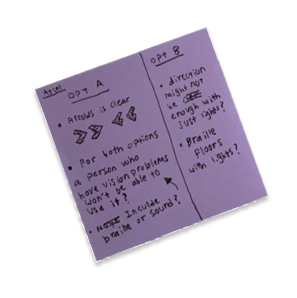 Ariel
OPT A
• Arrows is clear
• For both options
a person who
have vision problems
won't be able to
use it?
• Inculde
braille or sound?
OPT B
• direction
might not
be
enough with
just lights?
• Braille
floors
with lights?